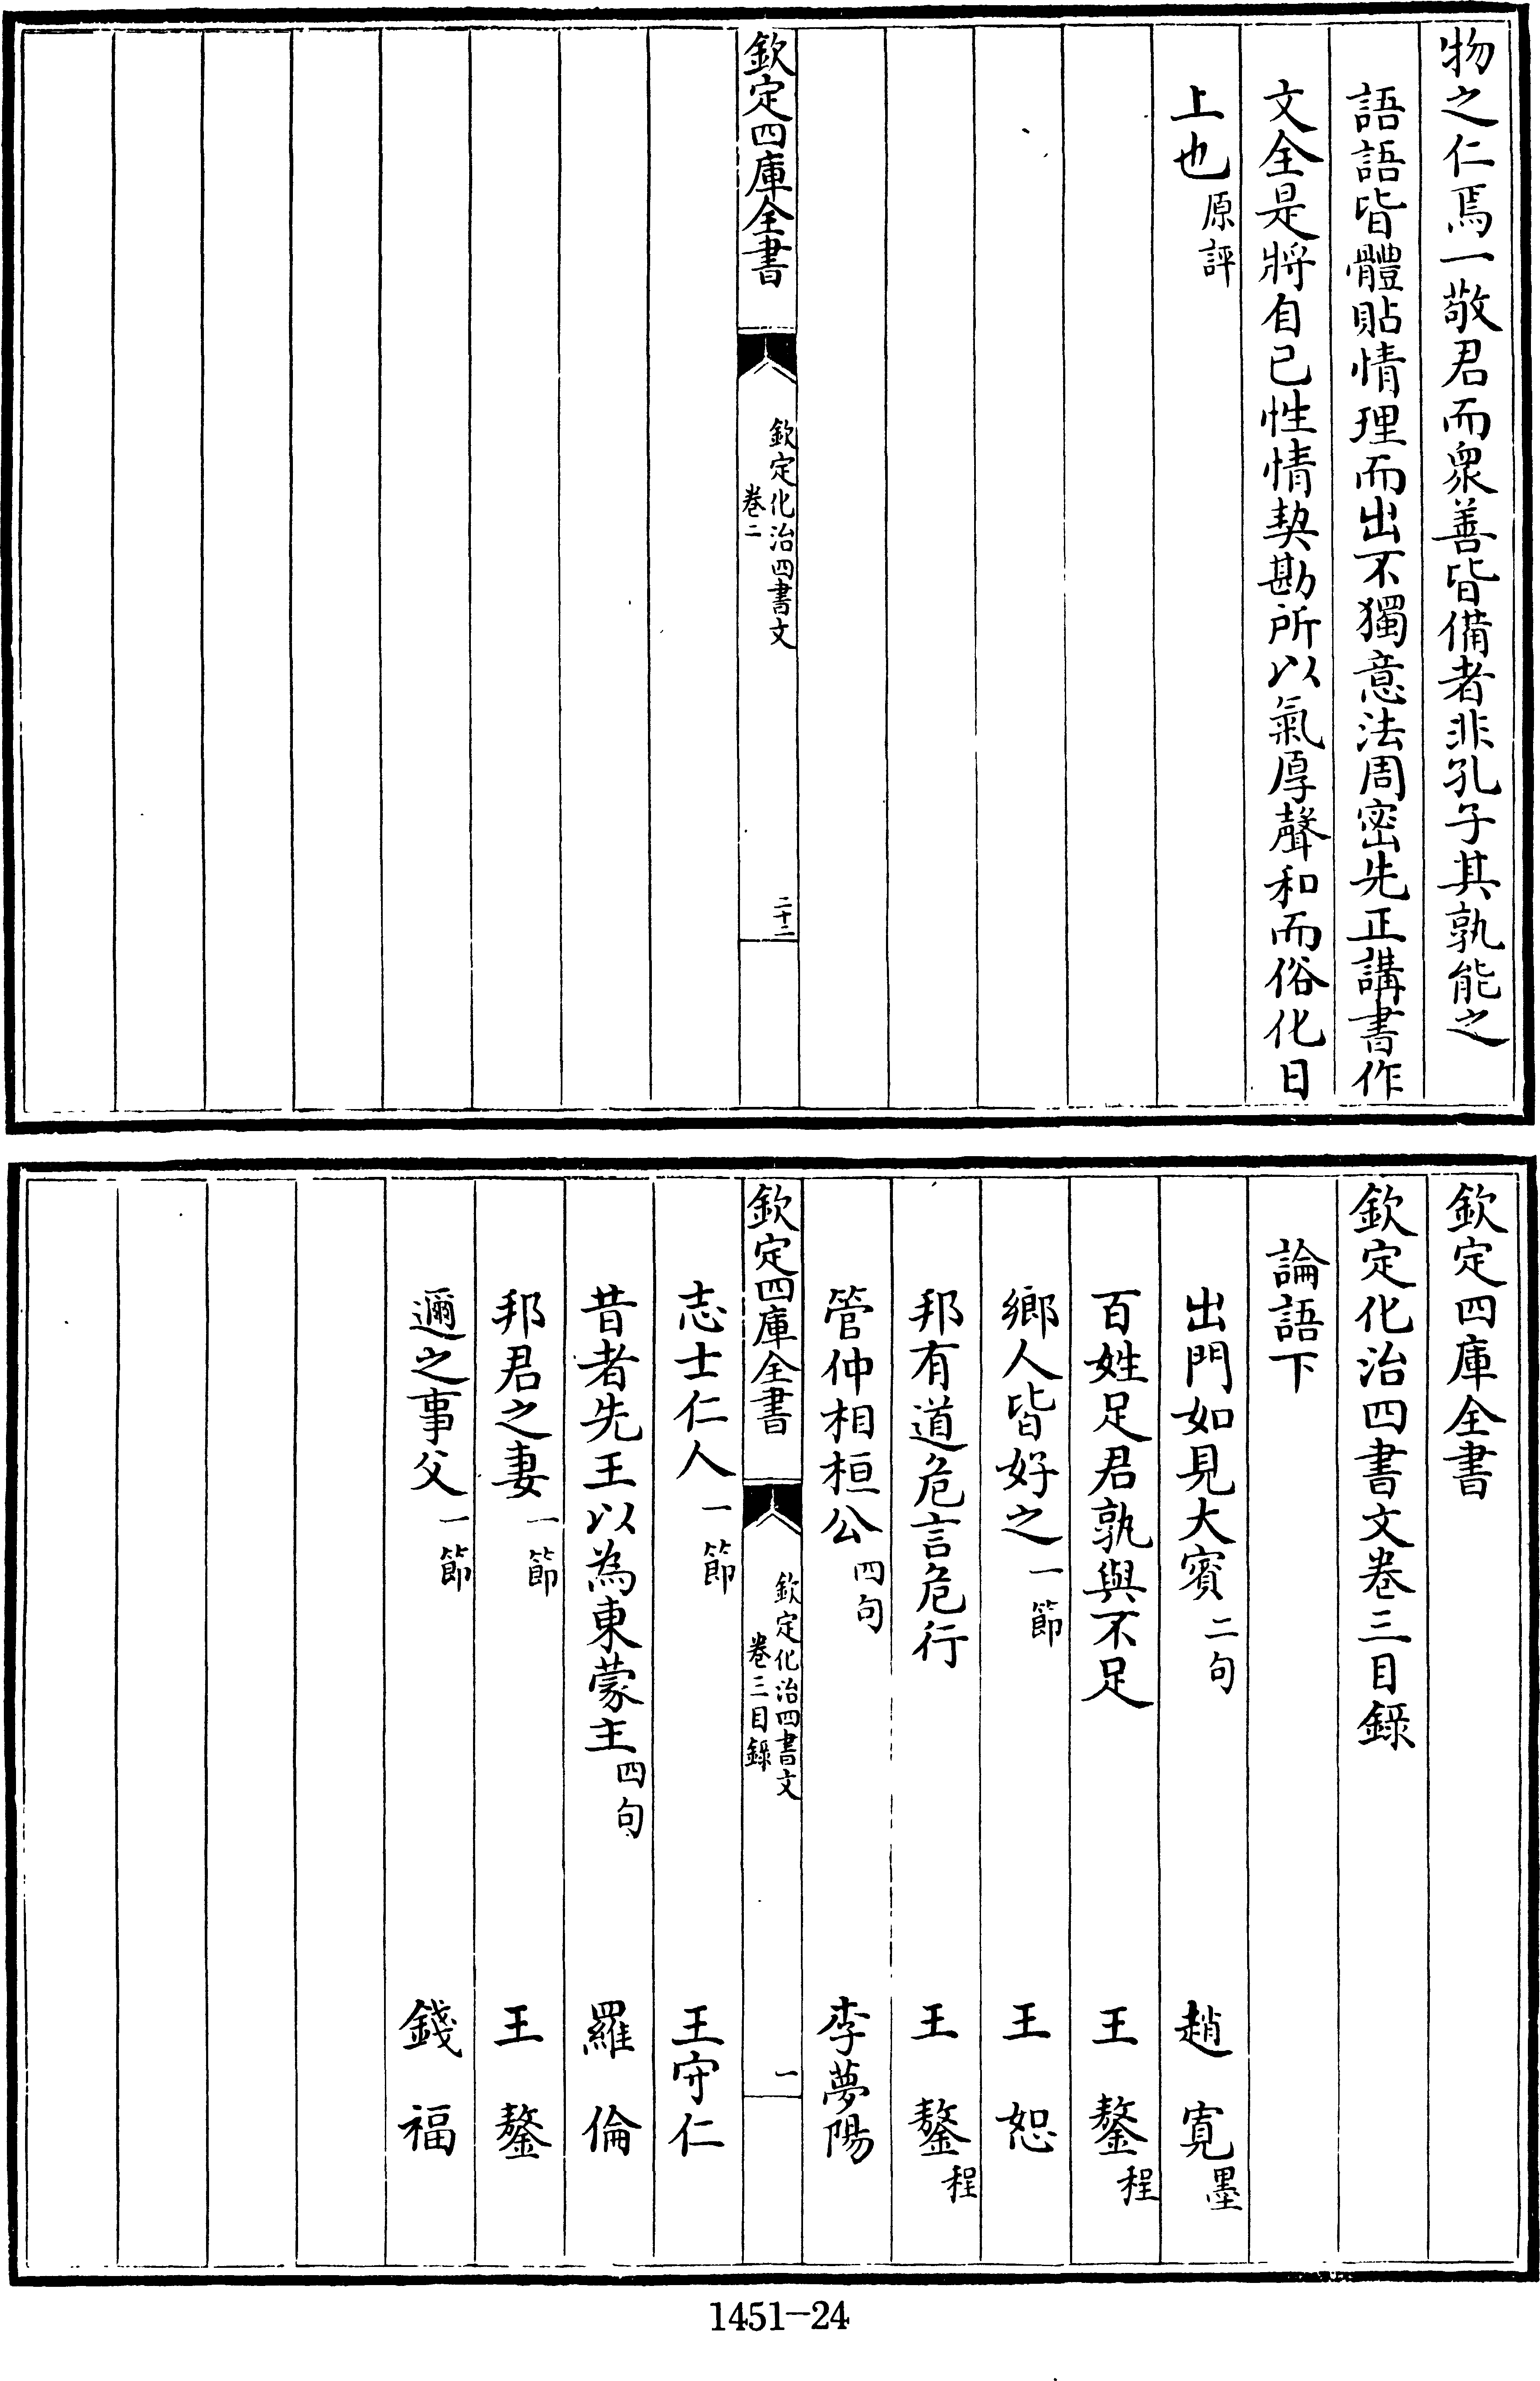 物之仁焉一敬君而衆善皆備者非孔子其孰能之
語語皆體貼情理而出不獨意法周密先正講書作
文全是將自已性情契勘所以氣厚聲和而俗化日
上也原評
欽定四庫全書
欽定化治四書文
卷二
二十二
欽定四庫全書
欽定化治四書文卷三目錄
論語下
出門如見大賓二句 趙寛墨
百姓足君孰與不足 王鏊程
鄉人皆好之一節 王恕
邦有道危言危行 王鏊程
管仲相桓公四句 李夢陽
欽定四庫全書
欽定化治四書文
卷三目錄
一
志士仁人一節 王守仁
昔者先王以為東蒙主四句 羅倫
邦君之妻一節 王鏊
邇之事父一節 錢福
1451-24